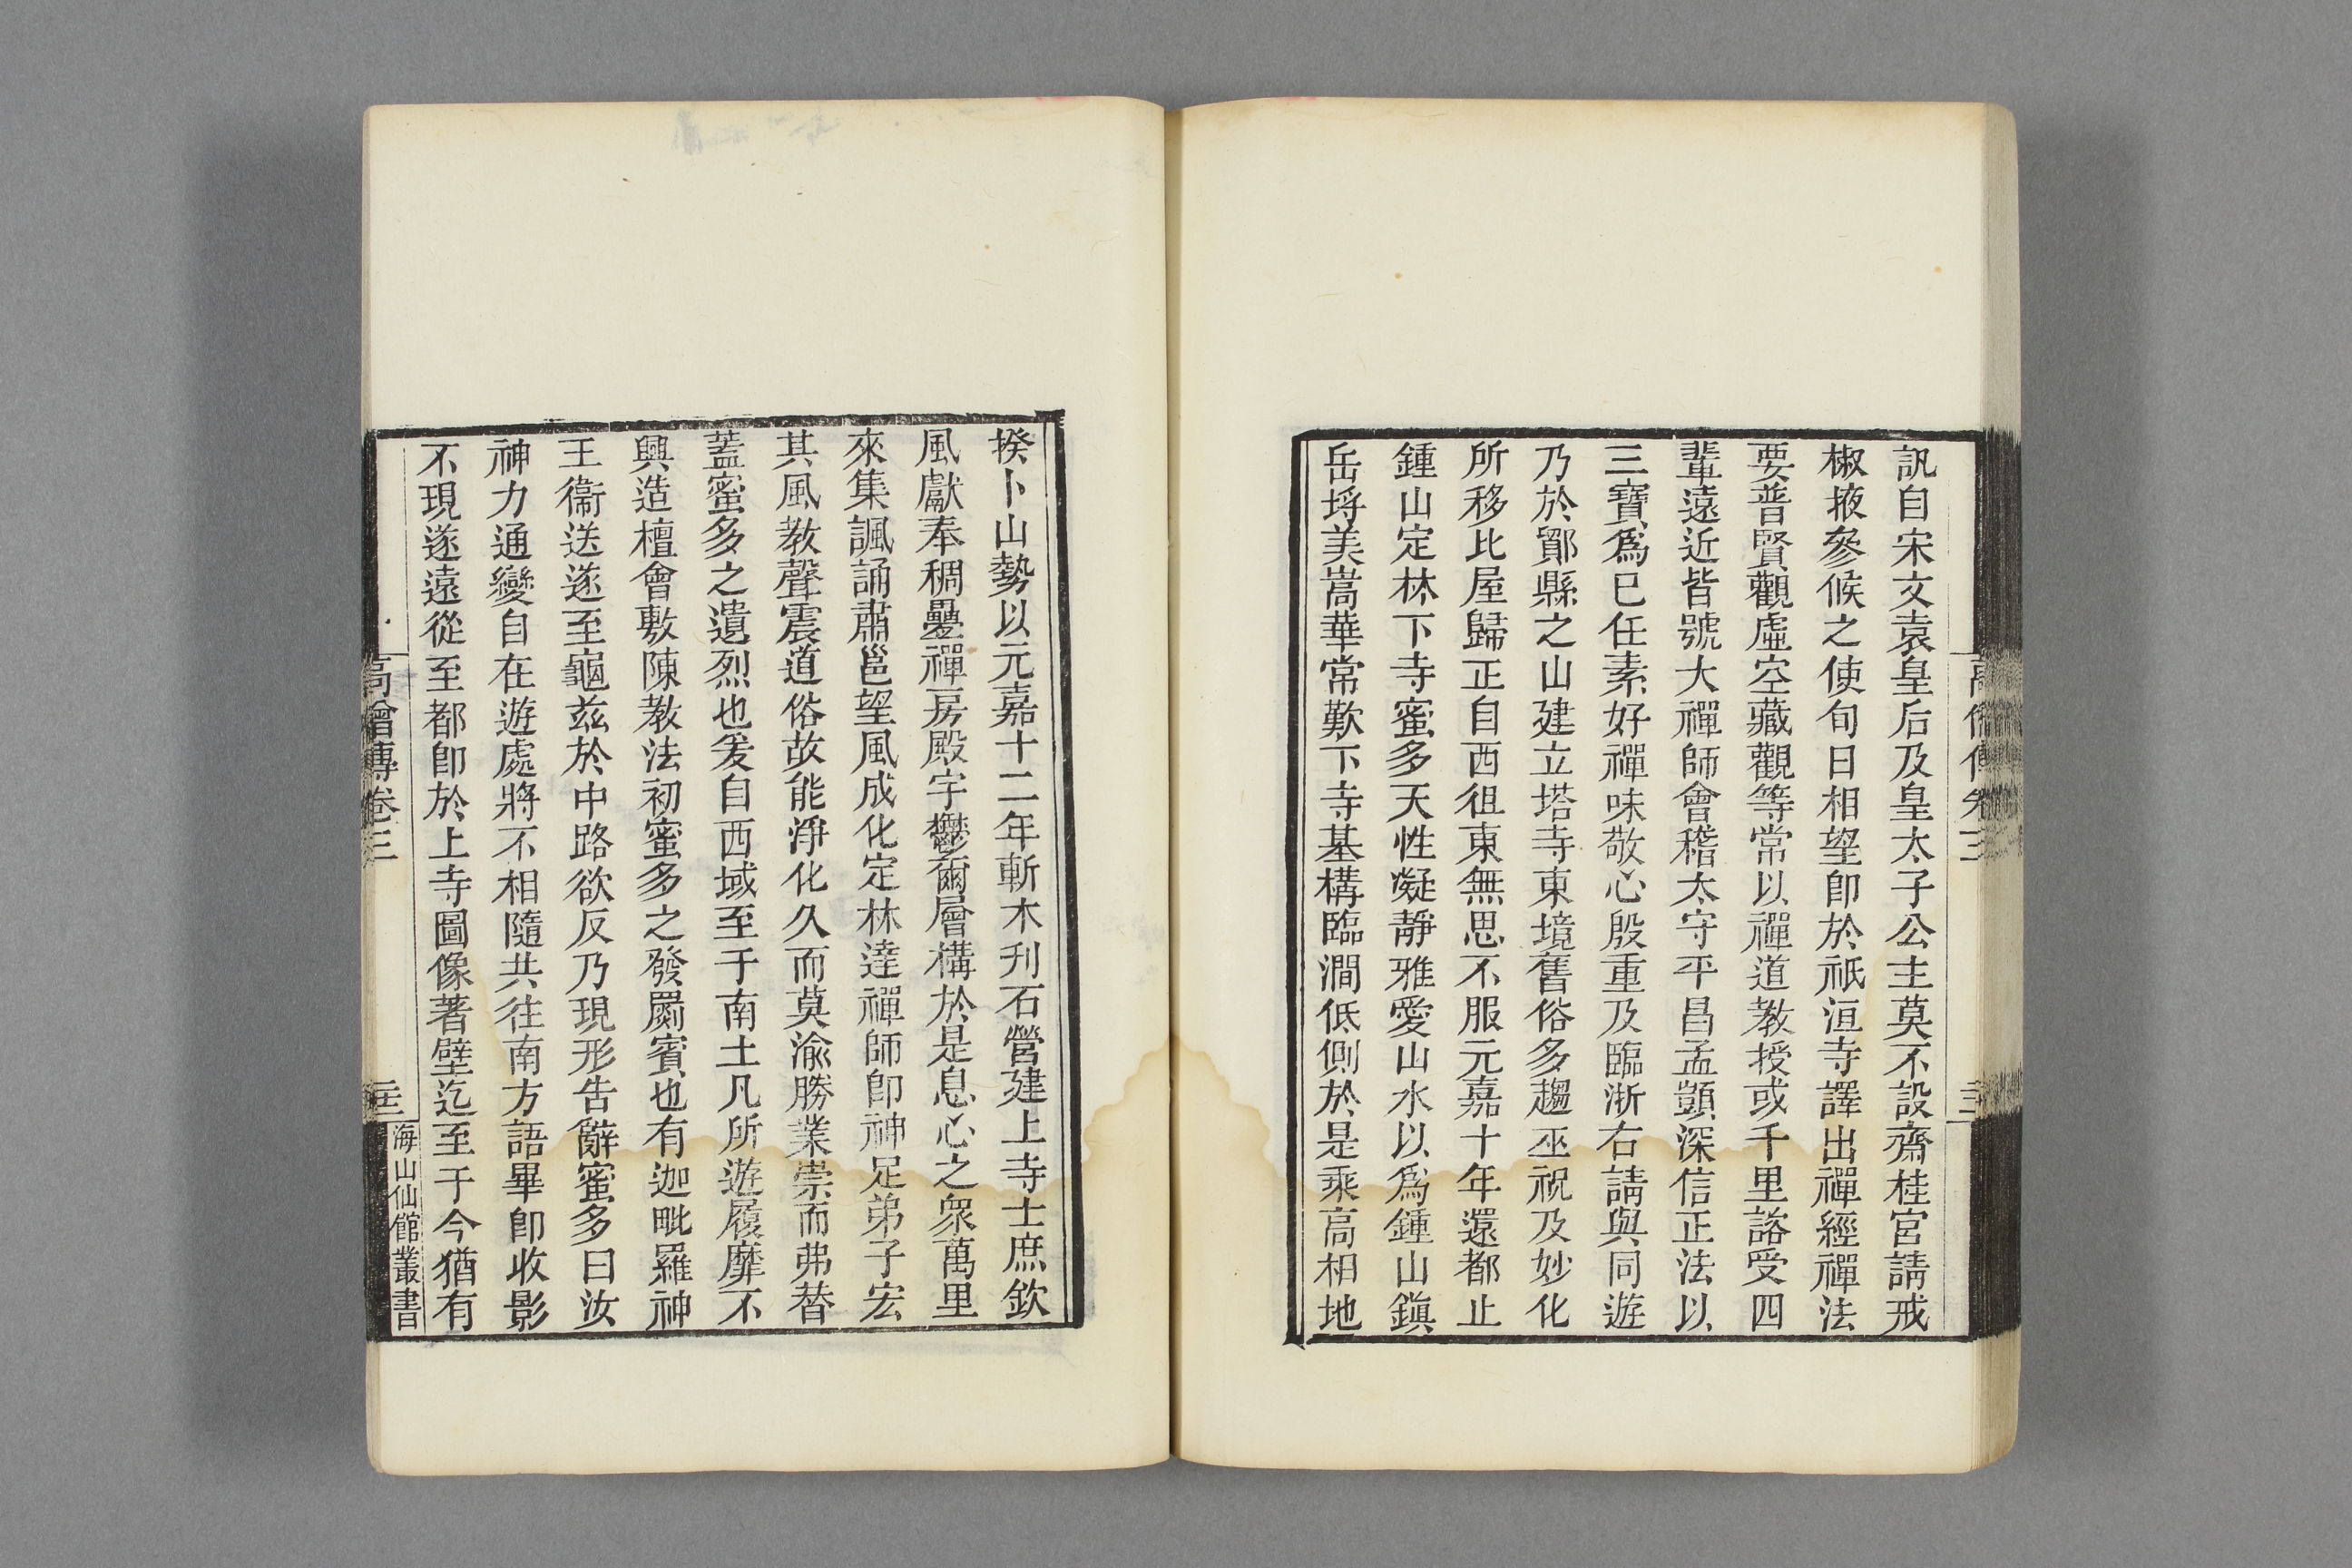 訊自宋文袁皇后及皇太子公主莫不設齋桂宮請戒
椒掖參候之使旬日相望卽於祇洹寺譯出禪經禪法
要普賢觀虛空藏觀等常以禪道教授或千里諮受四
輩遠近皆號大禪師會稽太守平昌孟顗深信正法以
三寶爲已任素好禪味敬心殷重及臨浙右請與同遊
乃於鄮縣之山建立塔寺東境舊俗多趨巫祝及妙化
所移比屋歸正自西徂東無思不服元嘉十年還都止
鍾山定林下寺蜜多天性凝靜雅愛山水以爲鍾山鎭
岳埓美嵩華常歎下寺基構臨澗低側於是乘高相地
高僧傳卷三
揆卜山勢以元嘉十二年斬木刋石營建上寺士庶欽
風獻奉稠疊禪房殿宇鬱爾層構於是息心之衆萬里
來集諷誦肅邕望風成化定林達禪師卽神足弟子宏
其風教聲震道俗故能淨化久而莫渝勝業崇而弗替
蓋蜜多之遺烈也爰自西域至于南土凡所遊履靡不
興造檀會敷陳教法初蜜多之發罽賓也有迦毗羅神
王衞送遂至龜兹於中路欲反乃現形告辭蜜多曰汝
神力通變自在遊處將不相隨共往南方語畢卽收影
不現遂遠從至都卽於上寺圖像著壁迄至于今猶有
高僧傳卷三
海山仙館叢書